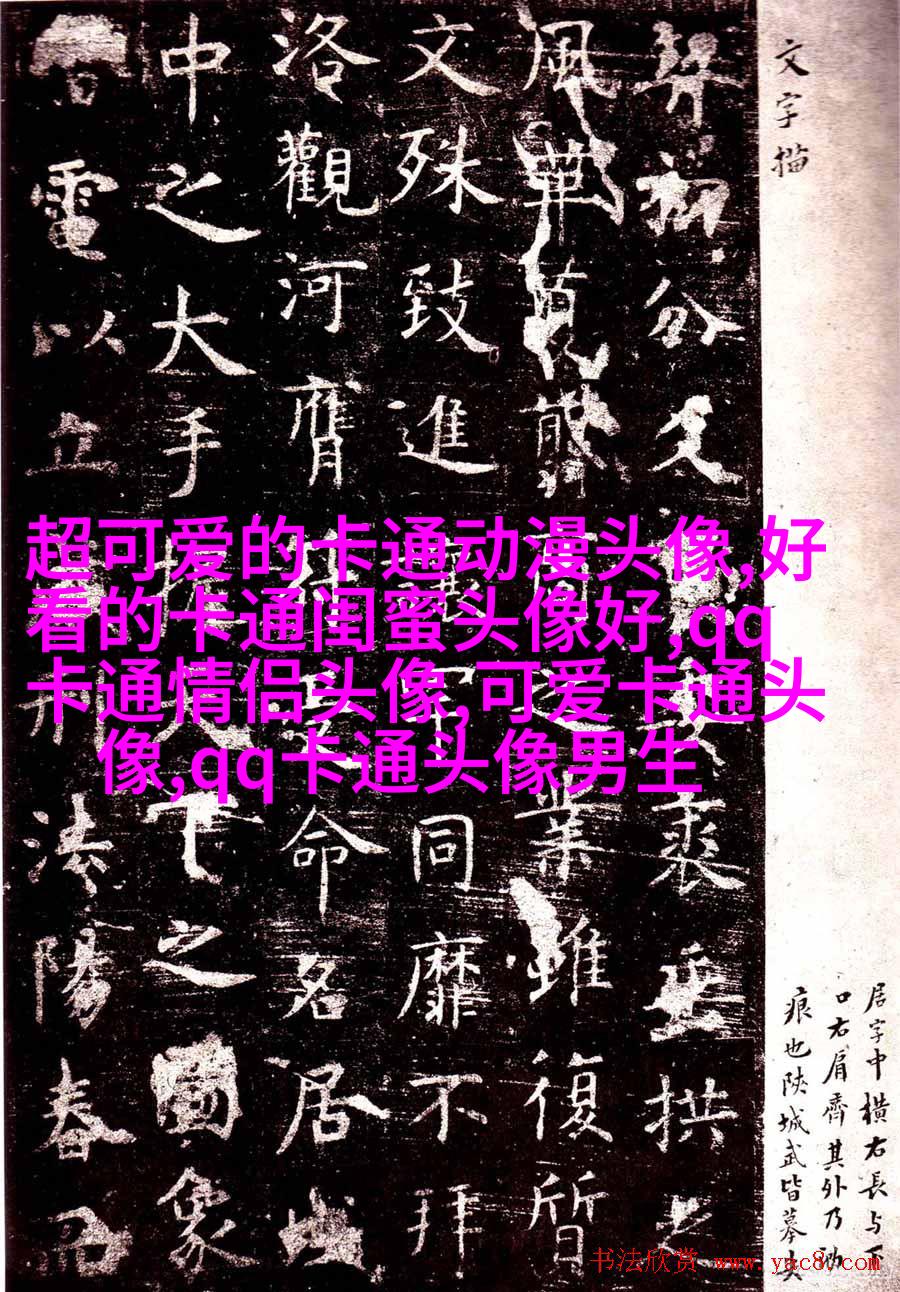 文字描
居字中橫右長与下
口右肩齊其外乃泐
痕也陝城武皆摹失
分文裘垂拱
風華之業雖復質
文殊致進讓罕同靡不拜
洛觀河膺受命名居域
中之大手握天下之圖象
電以立刑法陽春而
超可爱的卡通动漫头像,好
看的卡通闺蜜头像好,qq
卡通情侣头像,可爱卡通头
像,qq卡通头像男生
书法欣赏 www.yac8.com